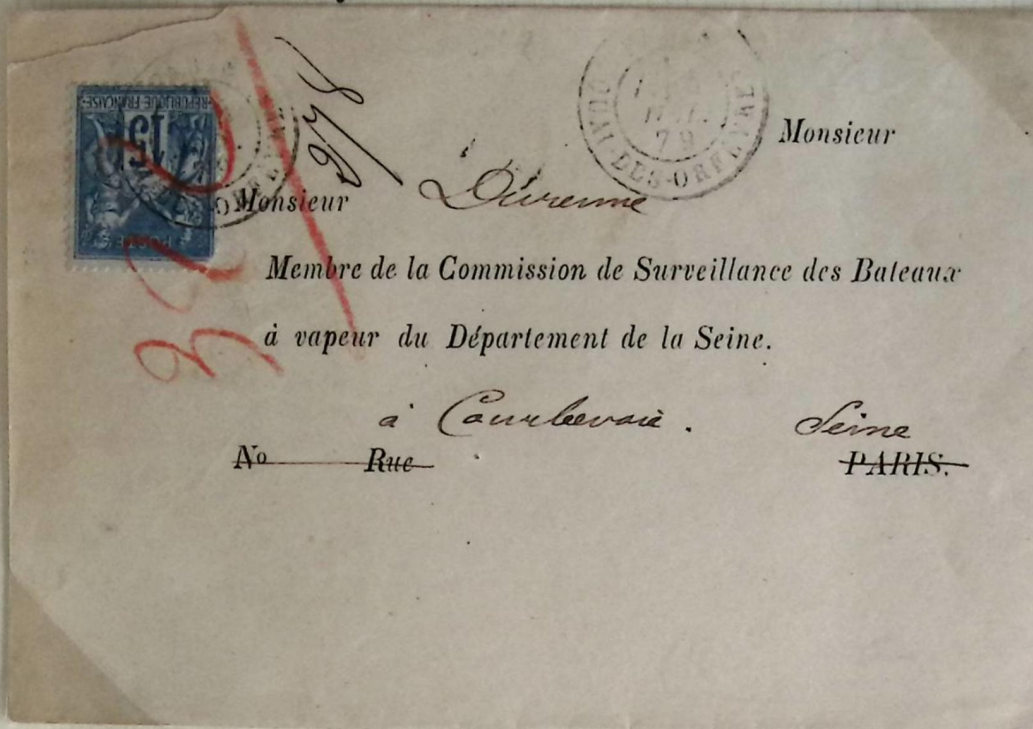 REPUBLIQUE FRANÇAISE
15
QUAI-DES-ORFEVRES
79
Monsieur
Monsieur Durenne
Membre de la Commission de Surveillance des Bateaux
à vapeur du Département de la Seine.
à Courbevoie. Seine
No Rue PARIS.